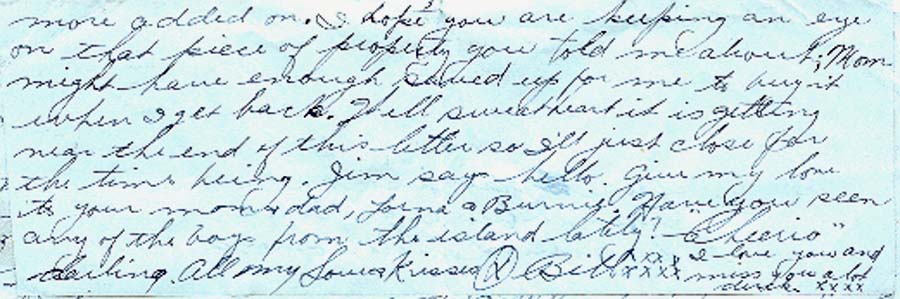 more added on. I hope you are keeping an eye
on that piece of property you told me about, Mom
might have enough saved up for me to buy it
when I get back. Well sweetheart it is getting
near the end of this letter so I'll just close for
the time being. Jim says hello. Give my love
to your mom & dad, Lorna & Burnis. Have you seen
any of the boys from the island lately? "Cheerio"
darling. All my Love & Kisses Bill xxxx I love you and
xxxx miss you a lot
xxxx